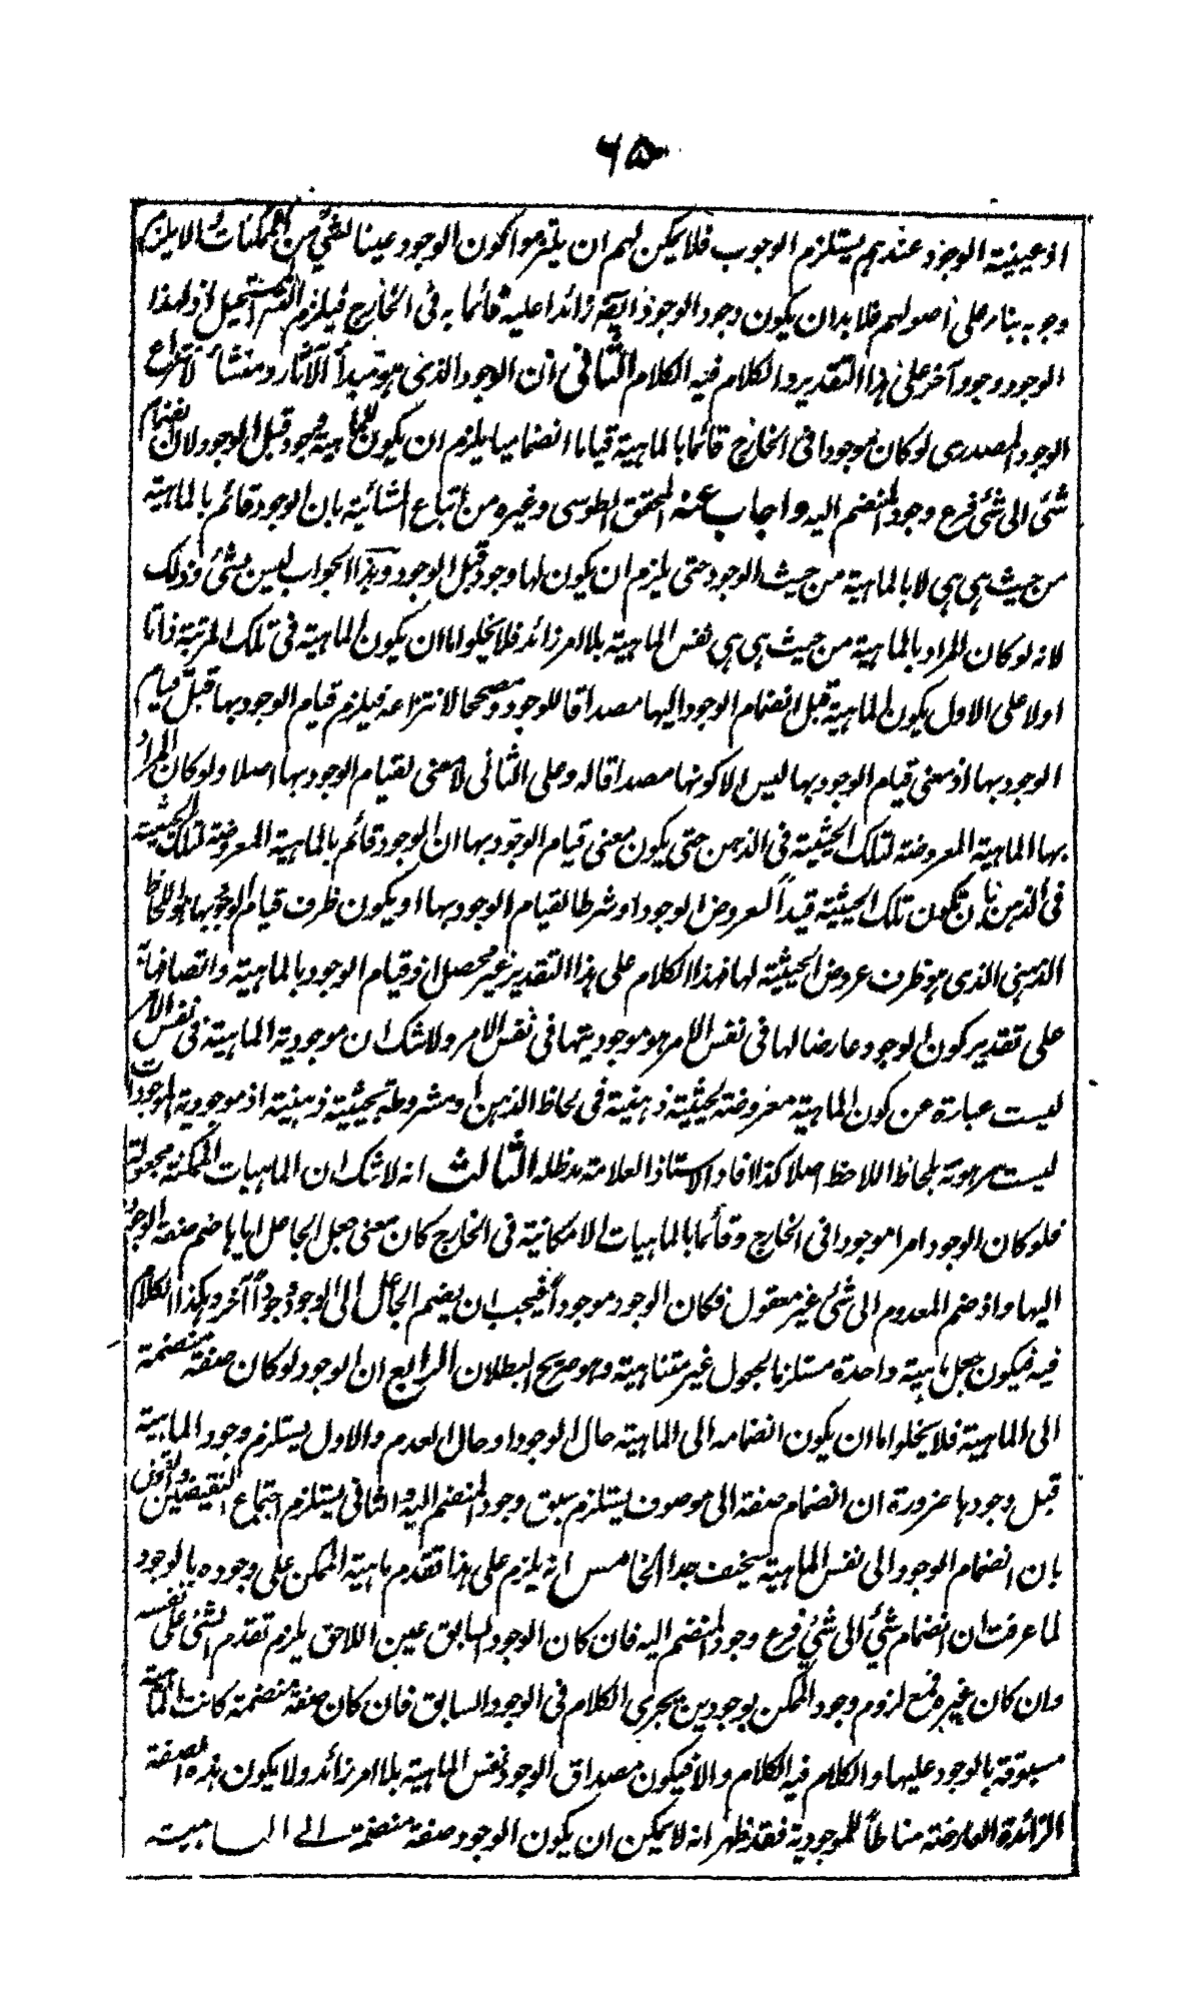 ۶۵
اذ عينية الوجود عندهم يستلزم الوجوب فلا يمكن لهم ان يلتزموا كون الوجود عينا لشئ من الممكنات والا يلزم
وجوبه بناء على اصولهم فلا بد ان يكون وجود الوجود ايضا زائدا عليه قائما به فى الخارج فيلزم التس المستحيل اذ لهذا
الوجود وجود آخر على هذا التقدير والكلام فيه الكلام الثانى ان الوجود الذى هو مبدأ الآثار ومنشأ لانتزاع
الوجود المصدرى لو كان موجودا فى الخارج قائما بالماهية قياما انضماميا يلزم ان يكون للماهية وجود قبل الوجود لان انضمام
شئ الى شئ فرع وجود المنضم اليه واجاب عنه المحقق الطوسى وغيره من اتباع المشائية بان الوجود قائم بالماهية
من حيث هى هى لا بالماهية من حيث الوجود حتى يلزم ان يكون لها وجود قبل الوجود وهذا الجواب ليس بشئ وذلك
لانه لو كان المراد بالماهية من حيث هى هى نفس الماهية بلا امر زائد فلا يخلو اما ان يكون الماهية فى تلك المرتبة ذاتا
اولا على الاول يكون الماهية قبل انضمام الوجود اليها مصداقا للوجود ومصححا لانتزاعه فيلزم قيام الوجود بها قبل قيام
الوجود بها اذ معنى قيام الوجود بها ليس الا كونها مصداقا له وعلى الثانى لا معنى لقيام الوجود بها اصلا ولو كان المراد
بها الماهية المعروضة لتلك الحيثية فى الذهن حتى يكون معنى قيام الوجود بها ان الوجود قائم بالماهية المعروضة لتلك الحيثية
فى الذهن بان تكون تلك الحيثية قيداً لعروض الوجود او شرطا لقيام الوجود بها او يكون ظرف قيام الوجود بها هو اللحاظ
الذهنى الذى هو ظرف عروض الحيثية لها فهذا الكلام على هذا التقدير غير محصل اذ قيام الوجود بالماهية واتصافها به
على تقدير كون الوجود عارضا لها فى نفس الامر هو موجوديتها فى نفس الامر ولا شك ان موجودية الماهية فى نفس الامر
ليست عبارة عن كون الماهية معروضة لحيثية ذهنية فى لحاظ الذهن او مشروطة بحيثية ذهنية اذ موجودية الموجودات
ليست مرهونة بلحاظ اللاحظ اصلا كذا افاد الاستاذ العلامة مد ظله الثالث انه لا شك ان الماهيات الممكنة مجعولة
فلو كان الوجود امرا موجودا فى الخارج وقائما بالماهيات الامكانية فى الخارج كان معنى جعل الجاعل اياها ضم صفة الوجود
اليها واذ ضم المعدوم الى شئ غير معقول فكان الوجود موجوداً فيجب ان يضم الجاعل الى الوجود وجوداً آخر وهكذا الكلام
فيه فيكون جعل ماهية واحدة مستلزما لجعول غير متناهية وهو صريح البطلان الرابع ان الوجود لو كان صفة منضمة
الى الماهية فلا يخلو اما ان يكون انضمامه الى الماهية حال الوجود او حال العدم والاول يستلزم وجود الماهية
قبل وجودها ضرورة ان انضمام صفة الى موصوف يستلزم سبق وجود المنضم اليه والثانى يستلزم اجتماع النقيضين والقول
بان انضمام الوجود الى نفس الماهية سخيف جدا الخامس انه يلزم على هذا تقدم ماهية الممكن على وجوده بالوجود
لما عرفت ان انضمام شئ الى شئ فرع وجود المنضم اليه فان كان الوجود السابق عين اللاحق يلزم تقدم الشئ على نفسه
وان كان غيره فمع لزوم وجود الممكن بوجودين يجرى الكلام فى الوجود السابق فان كان صفة منضمة كانت الماهية
مسبوقة بالوجود عليها والكلام فيه الكلام والا فيكون مصداق الوجود نفس الماهية بلا امر زائد ولا يكون هذه الصفة
الزائدة العارضة مناطاً للموجودية فقد ظهر انه لا يمكن ان يكون الوجود صفة منضمة الى الماهية